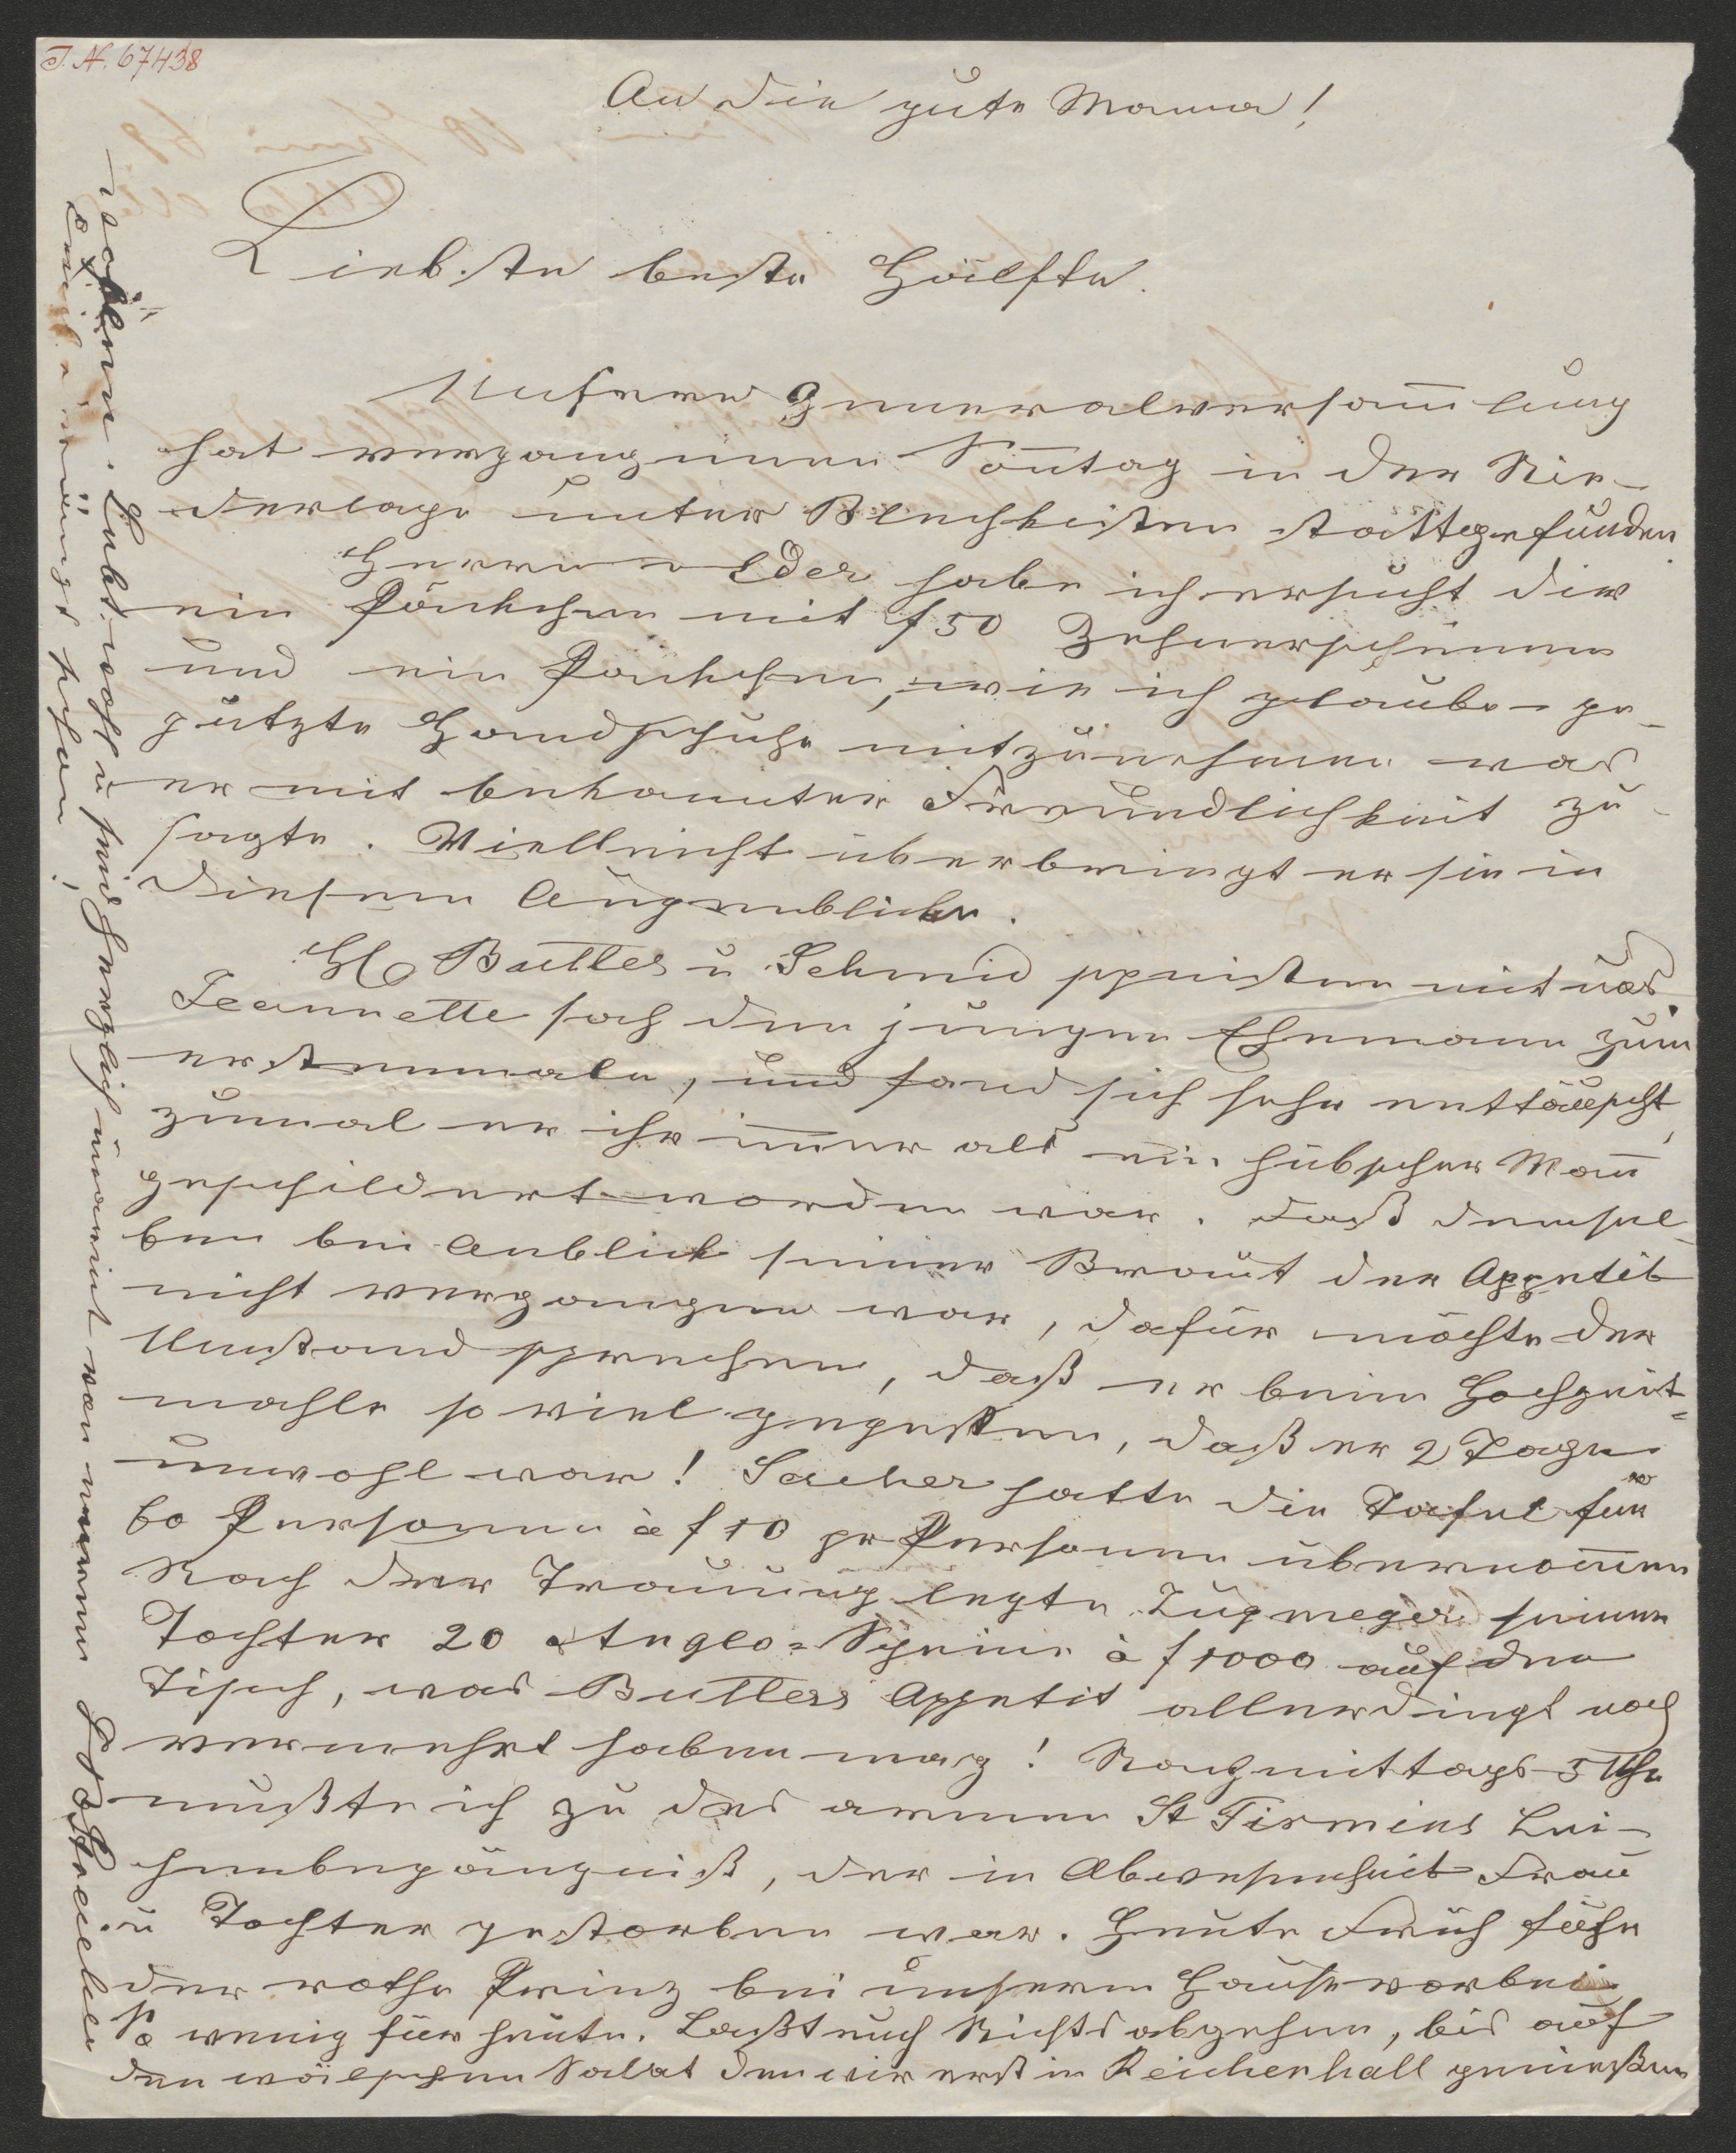 J. N. 67438
An die gute Mama!
Liebste beste Hälfte.
Unsere Generalversam̅lung
hat vergangenen Son̅tag in der Nie-
derlage unter Blechkisten stattgefunden
Herrn Eder habe ich ersucht dir
ein Päckchen mit f 50 Zehnerscheinen
und ein Päckchen, wie ich glaube ge-
putzte Handschuhe mitzunehmen was
er mit bekannter Freundlichkeit zu-
sagte. Vielleicht überbringt er sie in
diesem Augenblicke.
HH Butler u Schmid speisten mit uns.
Jeannette sah den jungen Ehemann zum
erstenmale, und fand sich sehr enttäuscht,
zumal er ihr im̅er als ein hübscher Man̅
geschildert worden war. Daß demsel-
ben bei Anblick seiner Braut der Appetit
nicht vergangen war, dafür möchte der
Umstand sprechen, daß er beim Hochzeit-
mahle so viel gegessen, daß er 2 Tage
unwohl war! Sacher hatte die Tafel für
60 Personen à f 10 pr Personen übernom̅en
Nach der Trauung legte Zugmeyer seiner
Tochter 20 Anglo-Scheine à f 1000 auf den
Tisch, was Butlers Appetit allerdings noch
vermehrt haben mag! Nachmittags 5 Uhr
mußte ich zu des armen St Firmins Lei-
chenbegängniß, der in Abwesenheit Frau
u Tochter gestorben war. Heute Früh fuhr
der rothe Prinz bei unserm Hause vorbei
So wenig für heute. Laßt euch Nichts abgehen, bis auf
den wälschen Salat den wir erst in Reichenhall genießen
wollen. Lebt wohl u seid herzlich umarmt von eurem
D Streicher